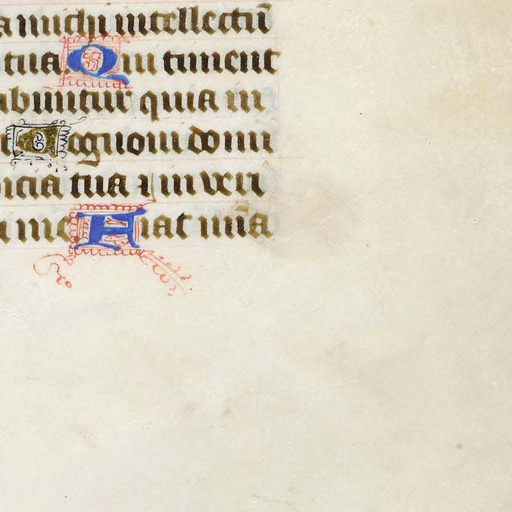 a michi intellectū
tua Qui timent
abuntur quia in
Cognoui domi
icia tua ⁊ in veri
me Fiat mīa